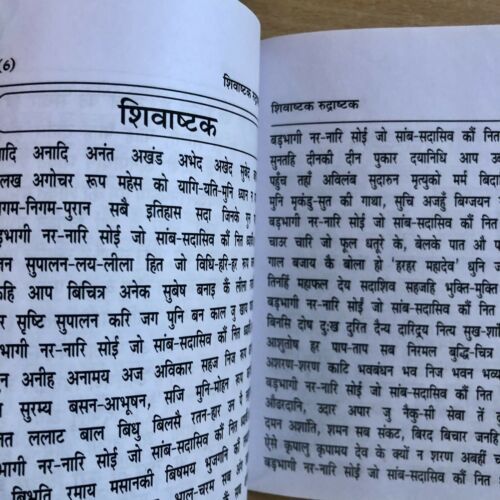 (6)
शिवाष्टक रुद्रा
शिवाष्टक
आदि अनादि अनंत अखंड अभेद अखेद सुबेद
लख अगोचर रूप महेस कौ यागि-यति-मुनि ध्यान
गम-निगम-पुरान सबै इतिहास सदा जिनके गुन
ड़भागी नर-नारि सोई जो सांब-सदासिव कौं नित
जन सुपालन-लय-लीला हित जो विधि-हरि-हर रूप
कहि आप बिचित्र अनेक सुबेष बनाइ कैं लीला
र सृष्टि सुपालन करि जग पुनि बन काल जु खाय
भागी नर-नारि सोई जो सांब-सदासिव कौं नित
न अनीह अनामय अज अविकार सहज निज रूप
सुरम्य बसन-आभूषन, सजि मुनि-मोहन रूप
त ललाट बाल बिधु बिलसै रतन-हार उर पै
भागी नर-नारि सोई जो सांब-सदासिव कौं नित
बिभूति रमाय मसानकी बिषमय भुजगनि कौं
भाल-चरम सब अंग
शिवाष्टक रुद्राष्टक
बड़भागी नर-नारि सोई जो सांब-सदासिव कौं नित
सुनतहि दीनकी दीन पुकार दयानिधि आप
पहुँच तहाँ अविलंब सुदारुन मृत्युको मर्म बिदारि
मुनि मृकंडु-सुत की गाथा, सुचि अजहुँ बिग्यजन
बड़भागी नर-नारि सोई जो सांब-सदासिव कौं नित
चाउर चारि जो फूल धतूरे के, बेलके पात औ
गाल बजाय कै बोला हो 'हरहर महादेव' धुनि
तिनहिं महाफल देय सदाशिव सहजहि भुक्ति-मुक्ति
बड़भागी नर-नारि सोई जो सांब-सदासिव कौं नित
बिनसि दोष दुःख दुरित दैन्य दारिद्र्य नित्य सुख-शांति
आशुतोष हर पाप-ताप सब निरमल बुद्धि-चित्र
अशरण-शरण काटि भवबंधन भव निज भवन भव्य
बड़भागी नर-नारि सोई जो सांब-सदासिव कौं नित
औढरदानि, उदार अपार जु नैकु-सी सेवा तें
दमन अशांति, शमन सब संकट, बिरद बिचार जनहिं
ऐसे कृपालु कृपामय देव के क्यों न शरण अबहीं
बड़भागी नर-नारि सोई जो सांब-सदासिव कौं नित